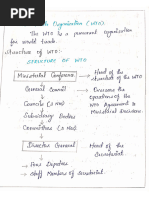 Organisation (WTO)
The WTO is a permanent organisation
for world trade.
Structure of WTO:
STRUCTURE OF WTO
Ministerial Conference → Head of the
structure of the
WTO
General Council → Oversees the
operations of the
WTO Agreement &
Ministerial Decisions.
Councils
Subsidiary Bodies
Committees
Director General → Head of the
Secretariat.
→ Four Deputies
→ Staff Members of Secretariat